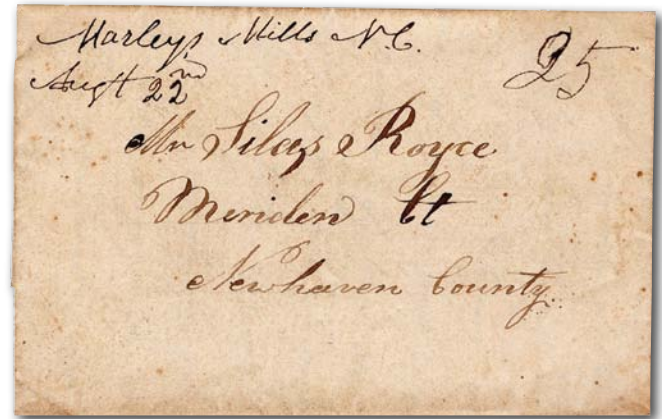 Marleys Mills N.C.
Augt 22nd
25
Mr Silas Royce
Meriden Ct
Newhaven County